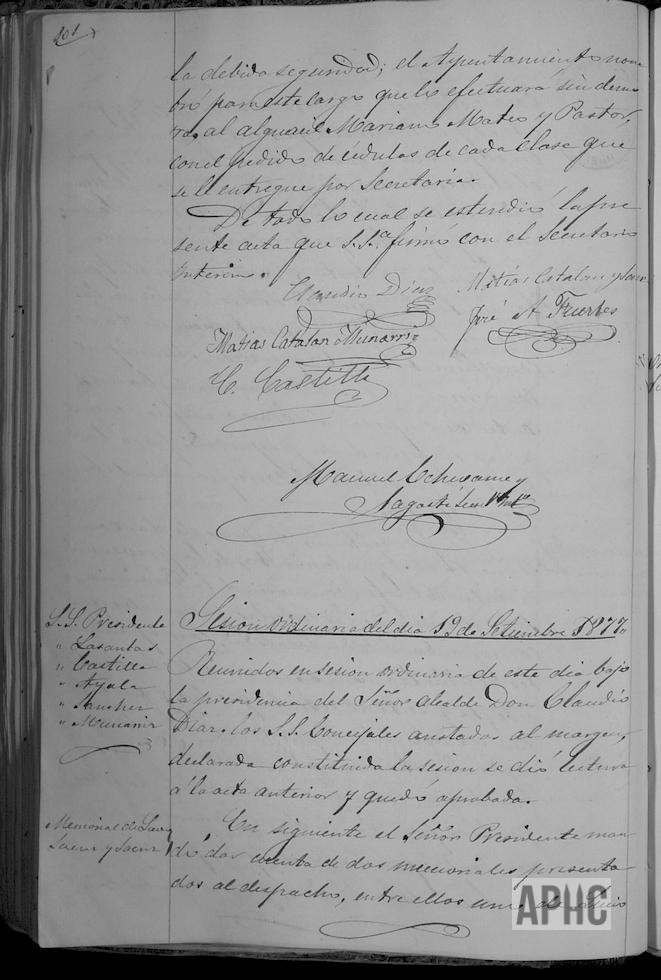 101
la debida seguridad; el Ayuntamiento nom
bró para este cargo que lo efectuará sin demo
ra, al alguacil Mariano Mateo y Pastor,
con el pedido de cédulas de cada clase que
se le entregue por Secretaria.
De todo lo cual se estendió la pre
sente acta que S.Sª firmó con el Secretario
interino.
Claudio Diaz
Matias Catalan y
José A Fuertes
Matias Catalan Munarriz
C. Castilla
Manuel
Sagasti
Sesion ordinaria del dia 12 de Setiembre 1877
S.S. Presidente
" Lasantas
" Castilla
" Ayala
" Sanchez
" Munarriz
Reunidos en sesion ordinaria de este dia bajo
la presidencia del Señor alcalde Don Claudio
Diaz los S.S. Concejales anotados al margen,
declarada constituida la sesion se dió lectura
á la acta anterior y quedó aprobada.
Memorial de
Saenz y Saenz
En siguiente el Señor Presidente man
dó dar cuenta de dos memoriales presenta
dos al despacho, entre ellos uno de Lucio
APHC